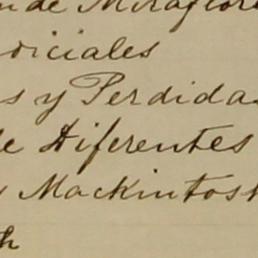 de Miraflor
diciales
s y Perdidas
de Diferentes
y Mackintosh
h